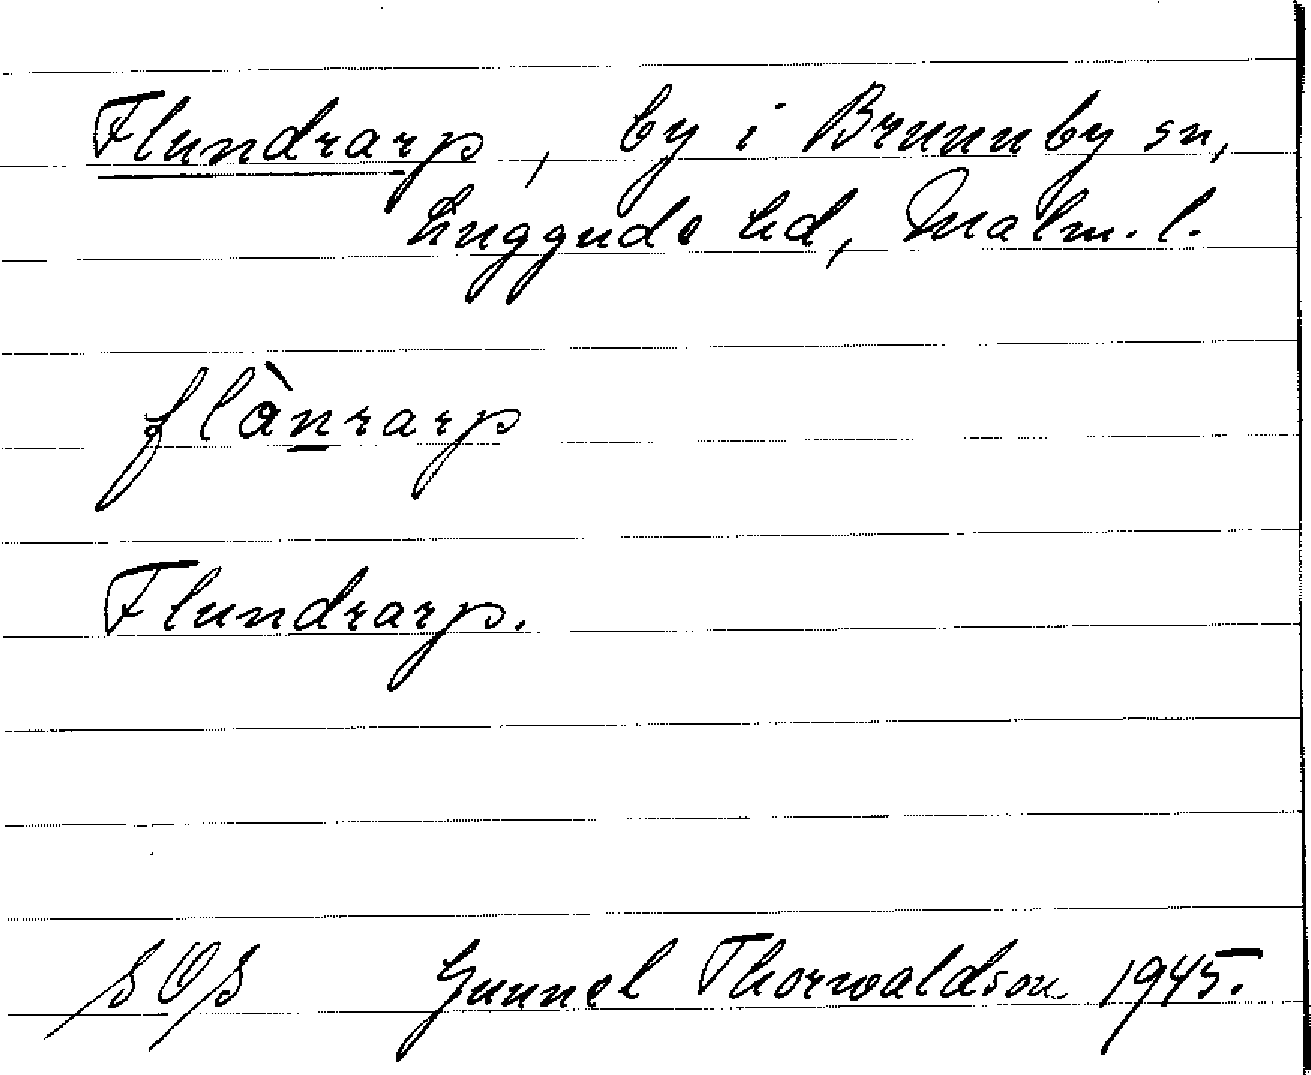 Flundrarp, by i Brunnby sn,
Luggude hd, Malm. l.
flàn̲rarp
Flundrarp.
SOS Gunnel Thorwaldson 1945.